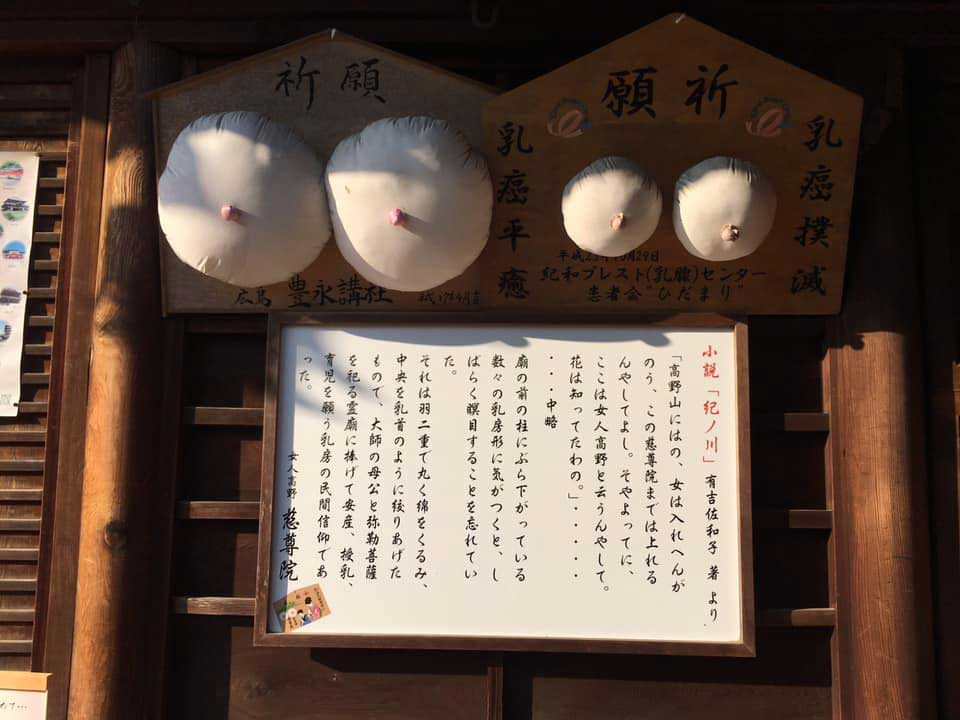 祈願
広島 豊永講社
祈願
乳癌撲滅
乳癌平癒
平成23年10月29日
紀和ブレスト(乳腺)センター
患者会"ひだまり"
小説「紀ノ川」有吉佐和子 著 より.
「高野山にはの、女は入れへんが
のう、この慈尊院までは上れる
んやしてよし。そやよってに、
ここは女人高野と云うんやして。
花は知ってたわの。」・・・・・
・・・中略
廟の前の柱にぶら下がっている
数々の乳房形に気がつくと、し
ばらく瞑目することを忘れてい
た。
それは羽二重で丸く綿をくるみ、
中央を乳首のように絞りあげた
もので、大師の母公と弥勒菩薩
を祀る霊廟に捧げて安産、授乳、
育児を願う乳房の民間信仰であ
った。
女人高野 慈尊院